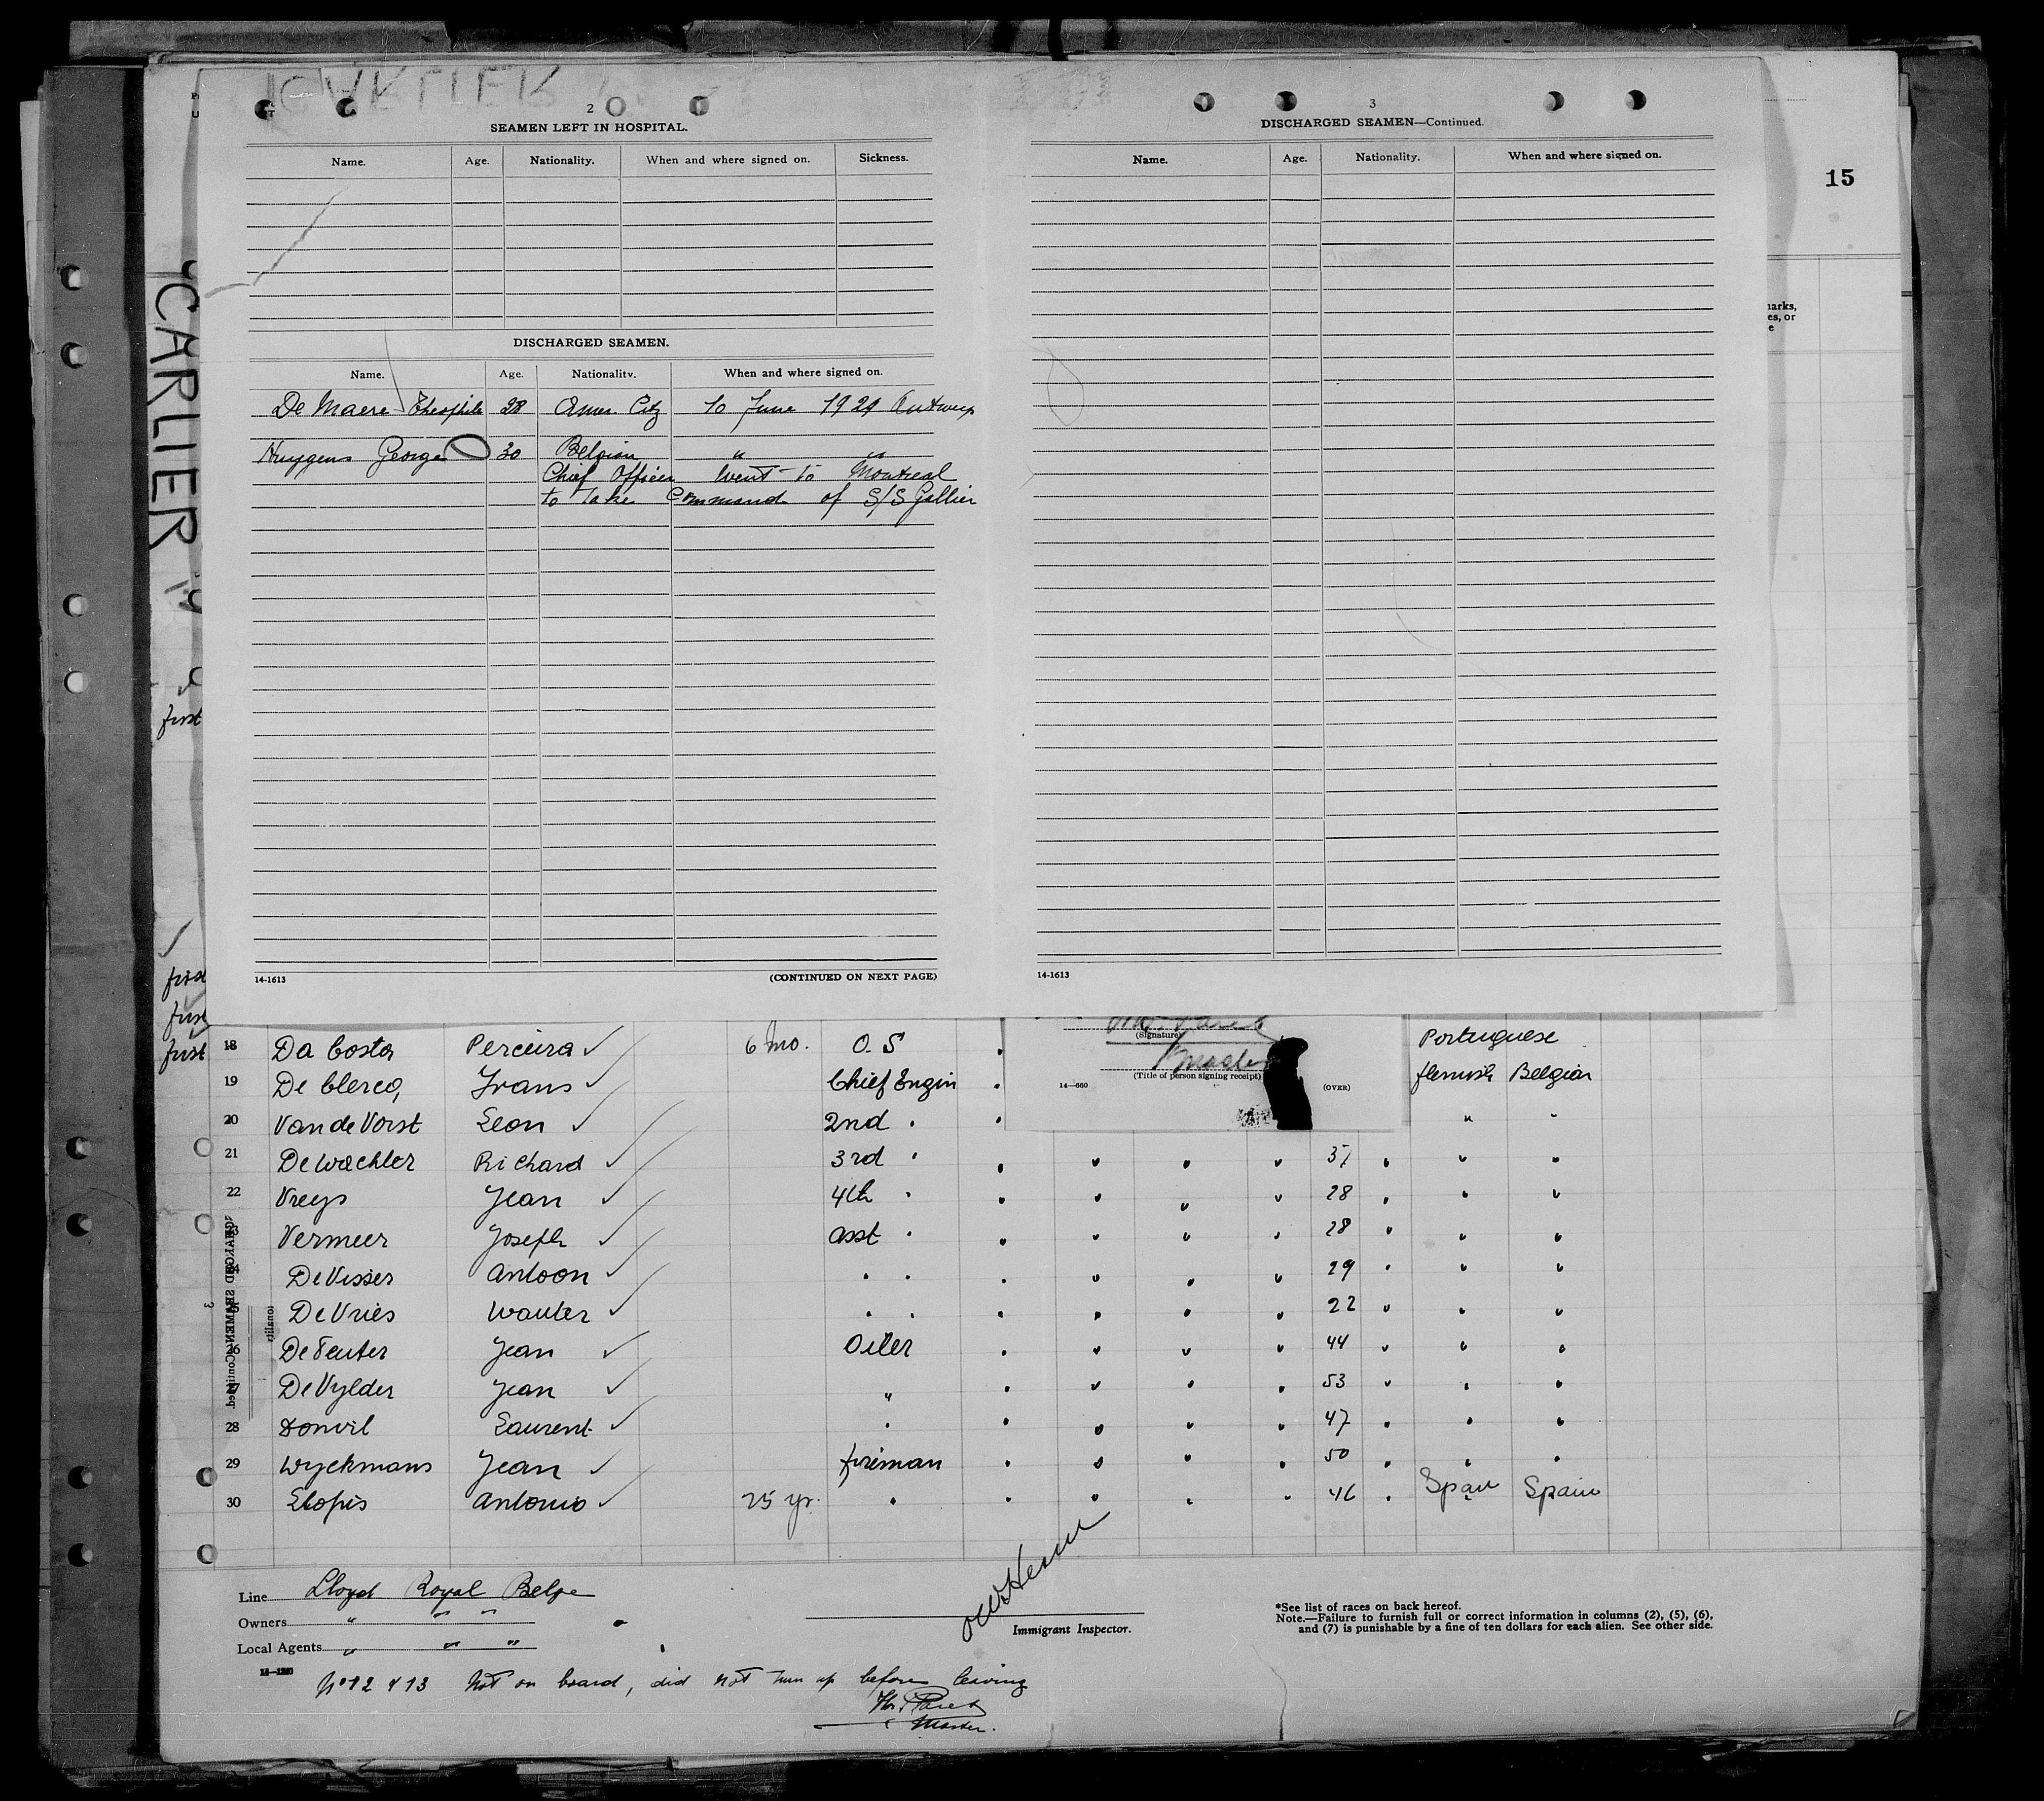 CARLIER
2
SEAMEN LEFT IN HOSPITAL.
Name. Age. Nationality. When and where signed on. Sickness.
DISCHARGED SEAMEN.
Name. Age. Nationality. When and where signed on.
De Maere Theophile 28 Amer. Citz 10 June 1921 Antwerp
Huygens George 30 Belgian " "
Chief Officer Went to Montreal
to Take Command of S/S Gallier
14-1613 (CONTINUED ON NEXT PAGE)
3
DISCHARGED SEAMEN—Continued.
Name. Age. Nationality. When and where signed on.
14-1613
15
marks,
es, or
e
CARLIER
first
first
first
first
(Signature)
Master
(Title of person signing receipt)
14—660 (OVER)
18 Da Costa Pereira ✓ 6 mo. O. S Portuguese
19 De Clercq, Frans ✓ Chief Engin " flemish Belgian
20 Van de Vorst Leon ✓ 2nd " " " "
21 De Wachter Richard ✓ 3rd " " " " " 37 " " "
22 Vreys Jean ✓ 4th " " " " " 28 " " "
23 Vermeer Joseph ✓ asst " " " " " 28 " " "
24 De Visser Antoon ✓ " " " " " " 29 " " "
25 De Vries Wouter ✓ " " " " " " 22 " " "
26 De Teuter Jean ✓ Oiler " " " " 44 " " "
27 De Vylder Jean ✓ " " " " " 53 " " "
28 Donvil Laurent ✓ " " " " " 47 " " "
29 Wyckmans Jean ✓ fireman " " " " 50 " " "
30 Llopis Antonio ✓ 25 yr. " " " " " 46 " Span Spain
DISCHARGED SEAMEN—Continued.
3
Line Lloyd Royal Belge
Owners " " "
Local Agents " " "
Immigrant Inspector.
*See list of races on back hereof.
Note.—Failure to furnish full or correct information in columns (2), (5), (6),
and (7) is punishable by a fine of ten dollars for each alien. See other side.
No 12 & 13 Not on board, did not turn up before leaving
Master.